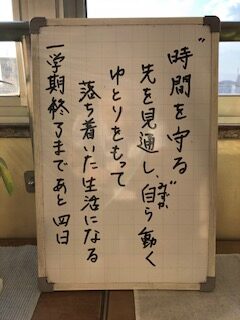 "時間を守る"
先を見通し、自ら動く
みずか
ゆとりをもって
落ち着いた生活になる
一学期終るまであと四日